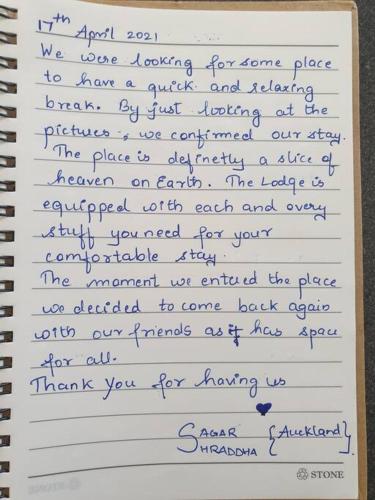 17th April 2021
We were looking for some place
to have a quick and relaxing
break. By just looking at the
pictures, we confirmed our stay.
The place is definetly a slice of
heaven on Earth. The Lodge is
equipped with each and every
stuff you need for your
comfortable stay.
The moment we entered the place
we decided to come back again
with our friends as it has space
for all.
Thank You for having us
SAGAR {Auckland}.
SHRADDHA
STONE